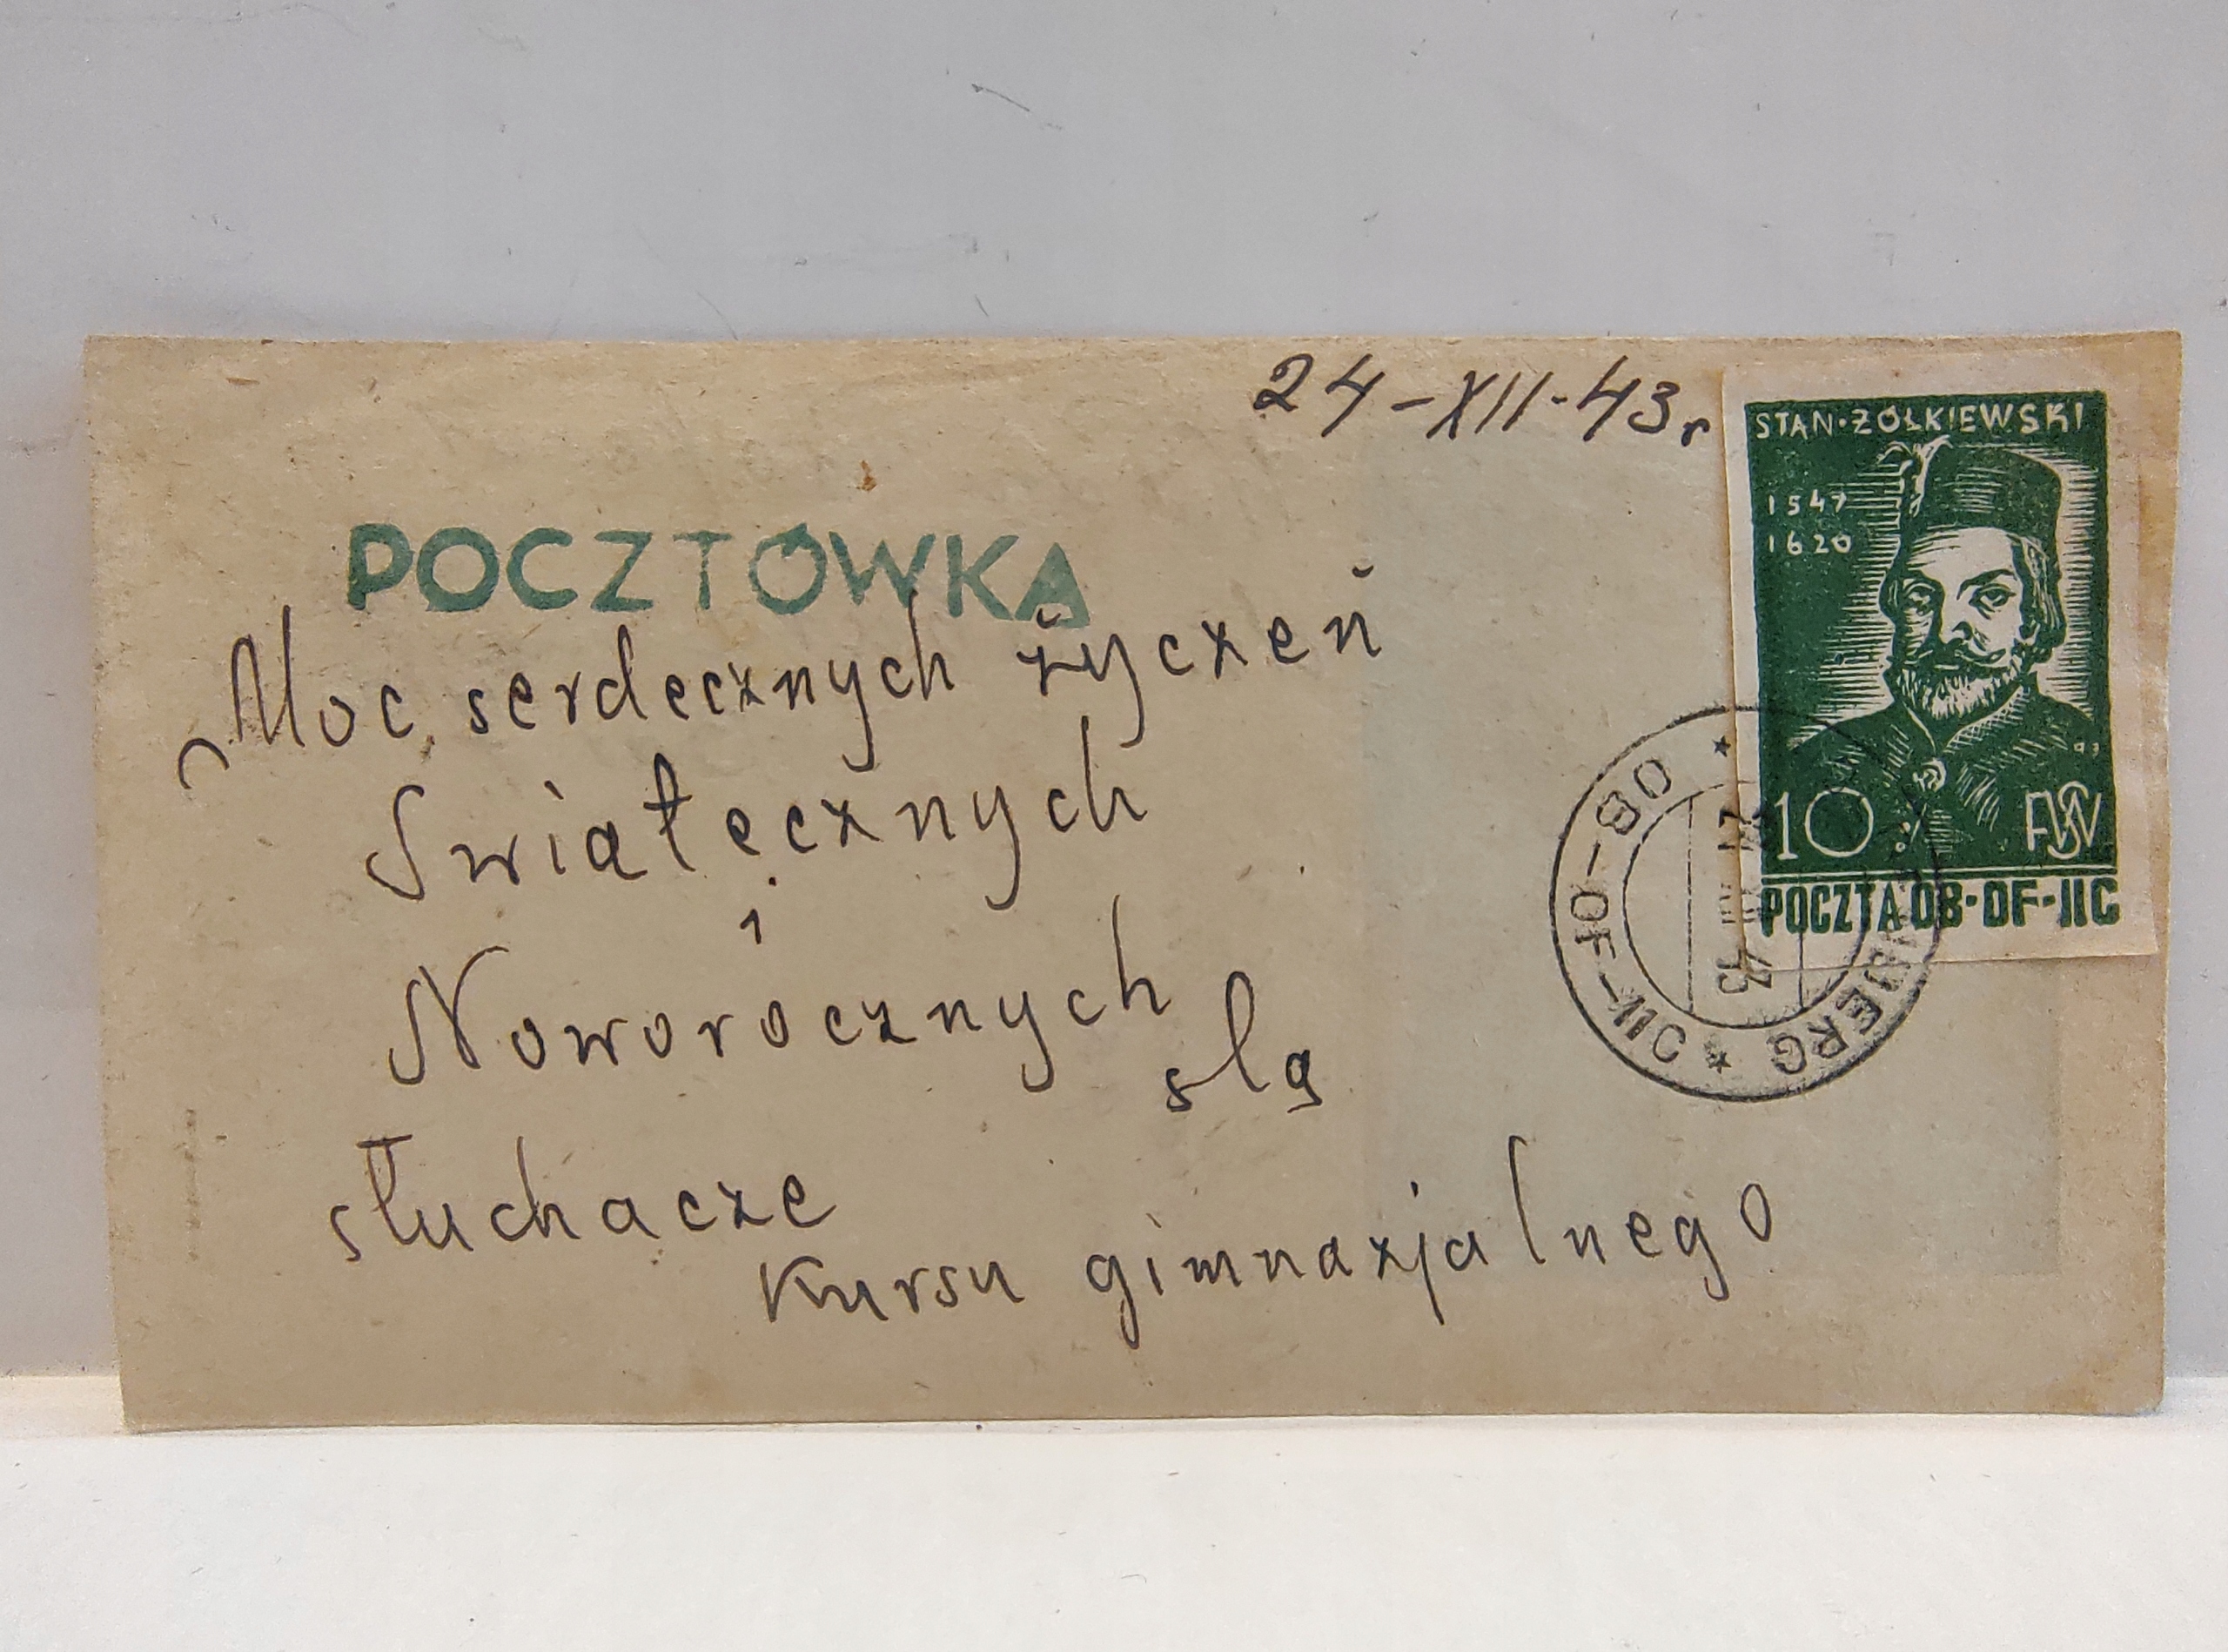 24-XII-43r
STAN·ŻÓŁKIEWSKI
1547
1620
10
POCZTA OB-OF-IIC
POCZTÓWKA
Moc serdecznych życzeń
Świątecznych
i
Noworocznych
ślą
słuchacze
Kursu gimnazjalnego
OB-OF-IIC